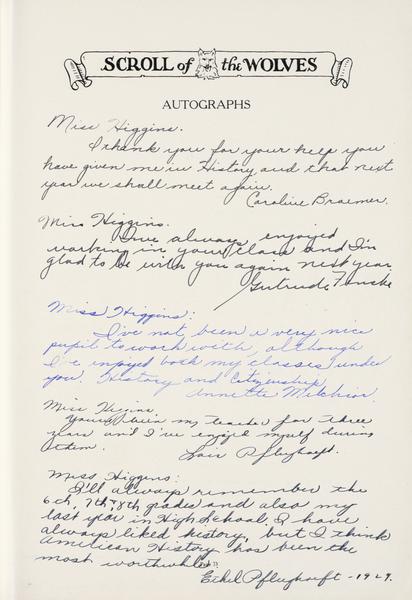 SCROLL of the WOLVES
AUTOGRAPHS
Miss Higgins.
I thank you for your help you
have given me in History and that next
year we shall meet again.
Caroline Braemer.
Miss Higgins.
I've always enjoyed
working in your class and I'm
glad to be with you again next year
Gertrude Fenske
Miss Higgins:
I've not been a very nice
pupil to work with, although
I've enjoyed both my classes under
you. History and Citizenship
Annette Melchior.
Miss Higgins
You've been my teacher for three
years and I've enjoyed myself during
them.
Lois Pflughoeft.
Miss Higgins:
I'll always remember the
6th, 7th, 8th grades and also my
last year in High School, I have
always liked history, but I think
American History has been the
most worthwhile
Ethel Pflughoeft - 1929.